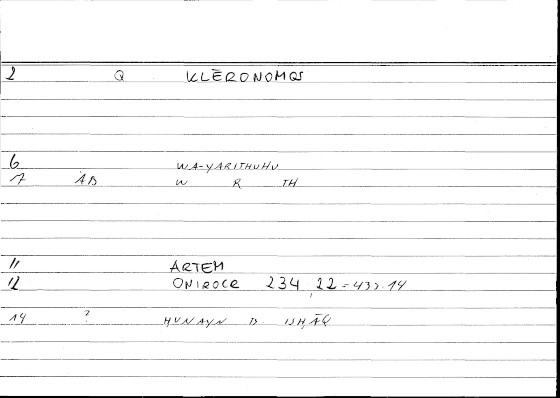 2 Q KLĒRONOMOS
6 WA-YARITHUHU
7 AB W R TH
11 ARTEM
12 ONIROCR 234,22 = 433.14
14 ? HUNAYN B. ISḤĀQ